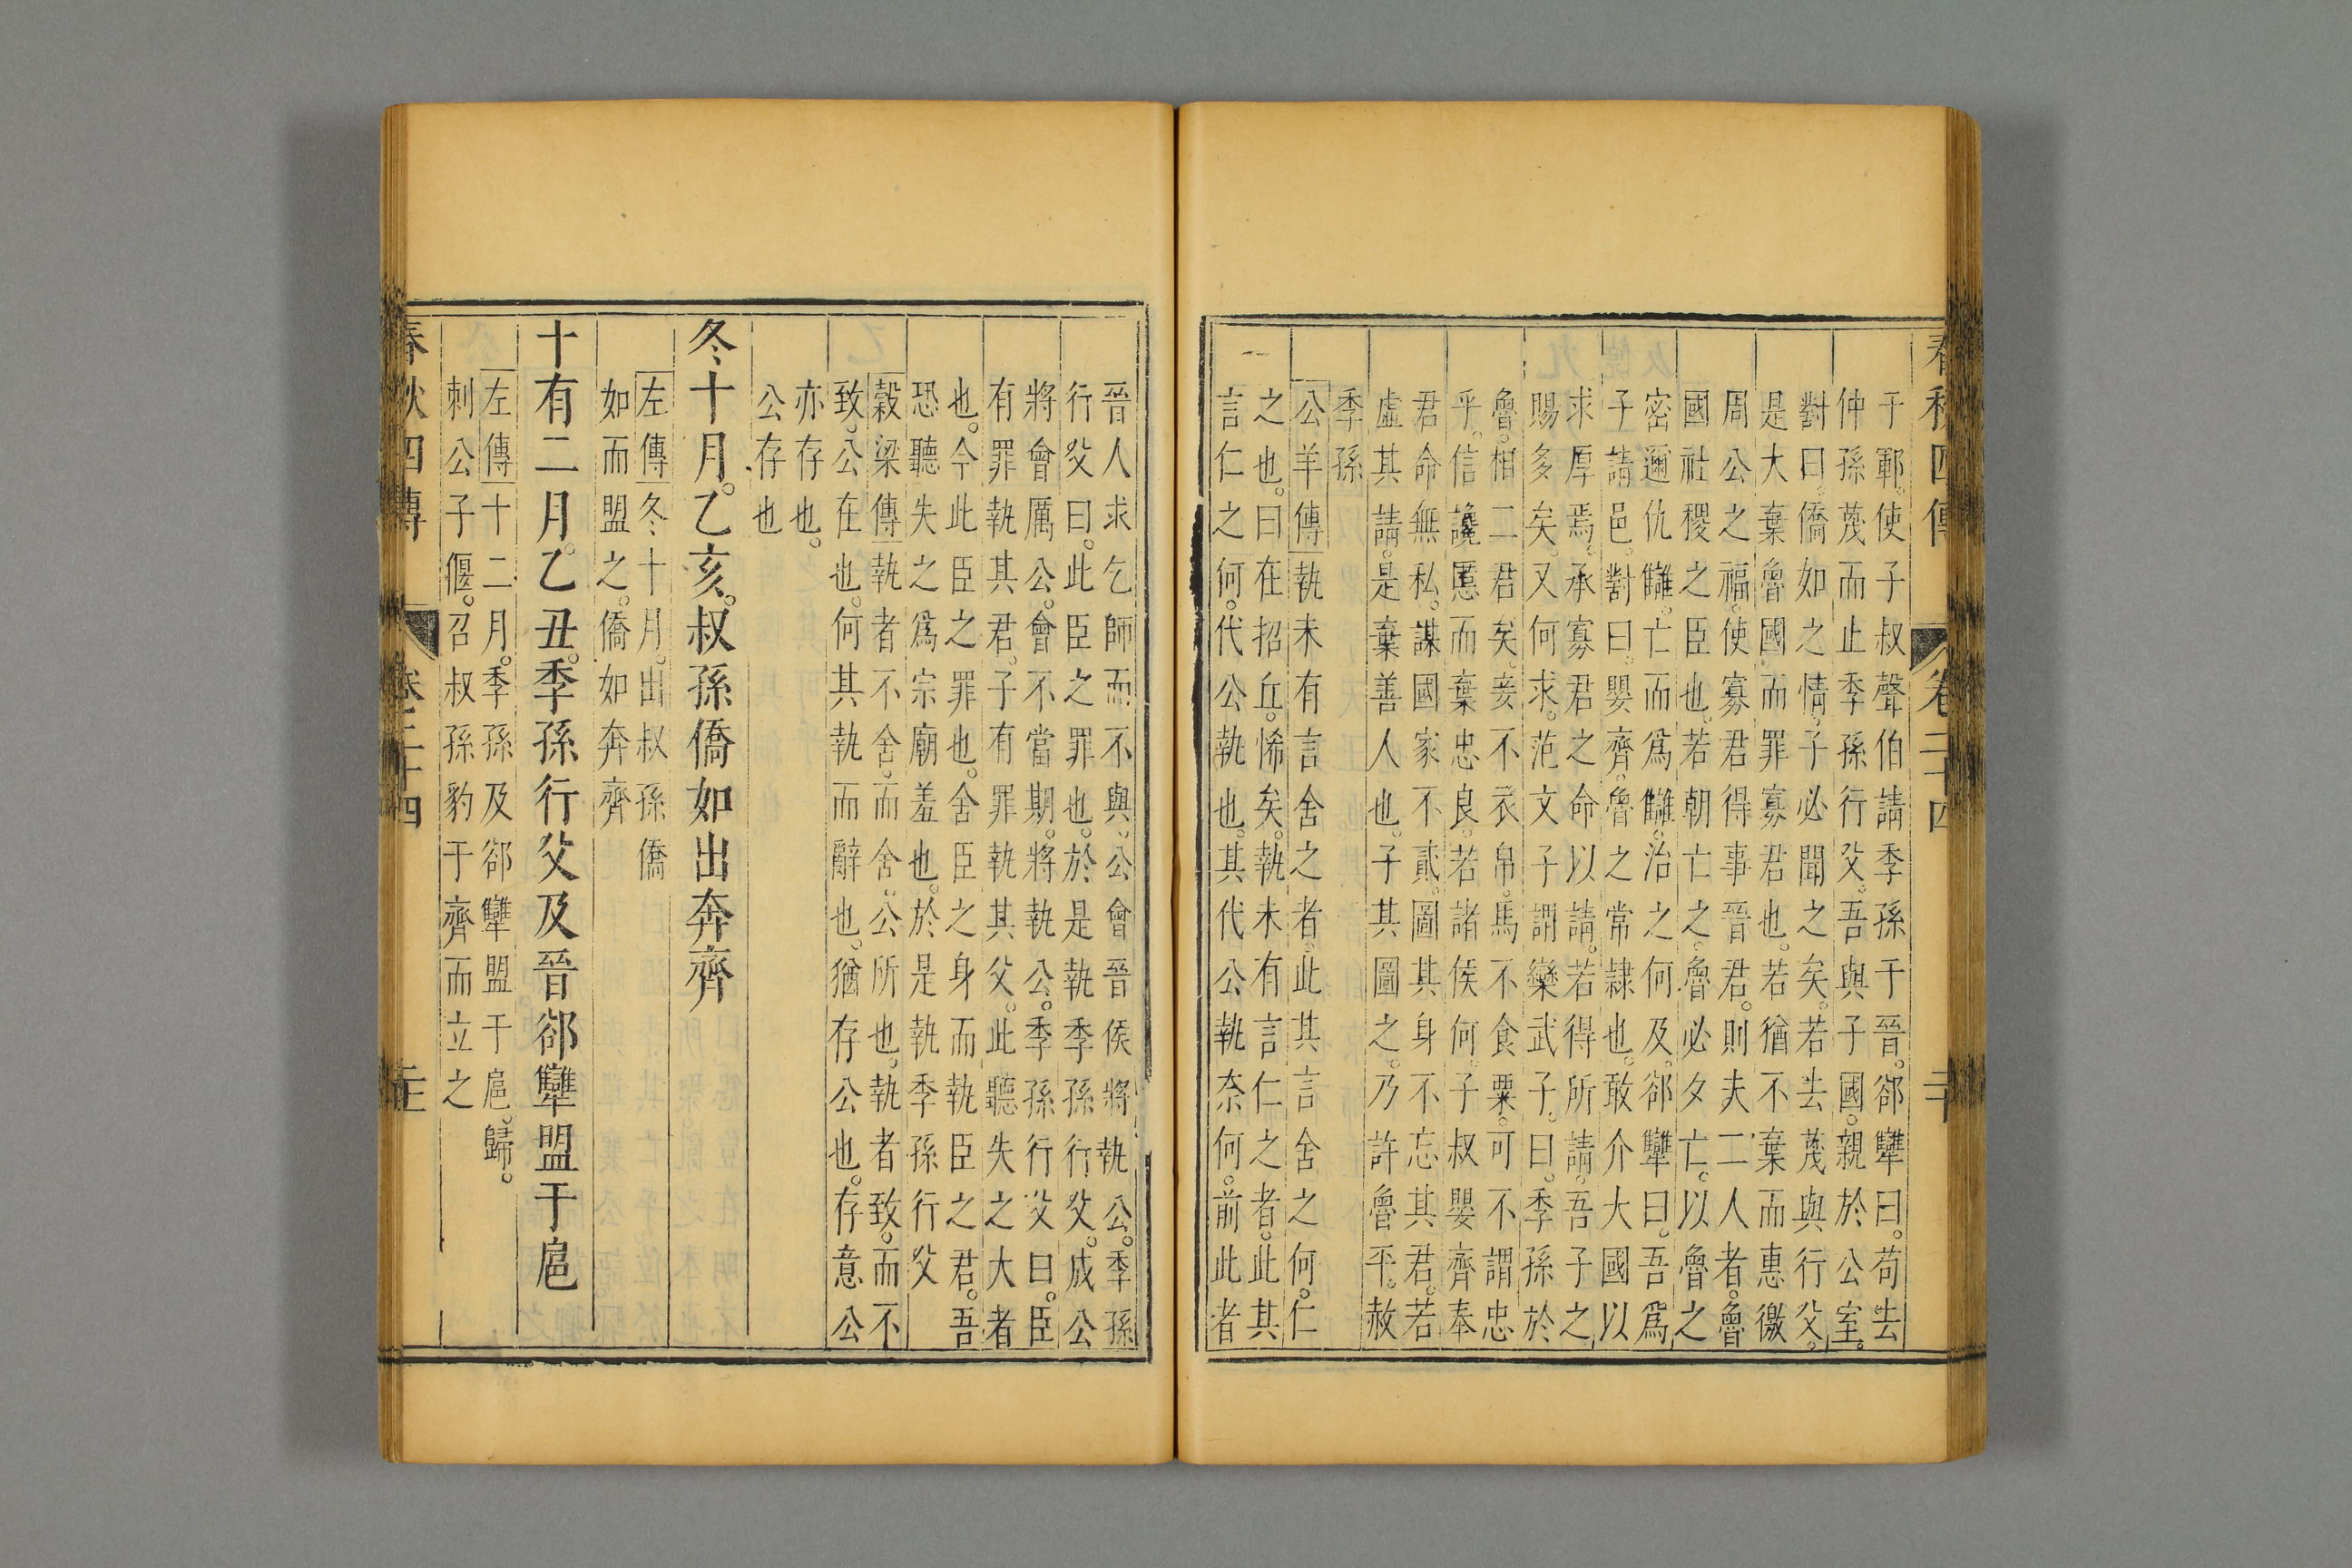 春秋四傳 卷二十四 二十
于鄆。使子叔聲伯請季孫于晉。郤犫曰。苟去
仲孫蔑而止季孫行父。吾與子國。親於公室。
對曰。僑如之情。子必聞之矣。若去蔑與行父。
是大棄魯國而罪寡君也。若猶不棄而惠徼
周公之福。使寡君得事晉君。則夫二人者。魯
國社稷之臣也。若朝亡之。魯必夕亡。以魯之
密邇仇讎。亡而爲讎。治之何及。郤犫曰。吾爲
子請邑。對曰。嬰齊。魯之常隷也。敢介大國以
求厚焉。承寡君之命以請。若得所請。吾子之
賜多矣。又何求。范文子謂欒武子。曰。季孫於
魯。相二君矣。妾不衣帛。馬不食粟。可不謂忠
乎。信讒慝而棄忠良。若諸侯何。子叔嬰齊奉
君命無私。謀國家不貳。圖其身不忘其君。若
虛其請。是棄善人也。子其圖之。乃許魯平。赦
季孫
公羊傳執未有言舍之者。此其言舍之何。仁
之也。曰在招丘。悕矣。執未有言仁之者。此其
言仁之何。代公執也。其代公執奈何。前此者
晉人求乞師而不與。公會晉侯將執公。季孫
行父曰。此臣之罪也。於是執季孫行父。成公
將會厲公。會不當期。將執公。季孫行父曰。臣
有罪執其君。子有罪執其父。此聽失之大者
也。今此臣之罪也。舍臣之身而執臣之君。吾
恐聽失之爲宗廟羞也。於是執季孫行父
穀梁傳執者不舍。而舍。公所也。執者致。而不
致。公在也。何其執而辭也。猶存公也。存意公
亦存也。
公存也
冬十月。乙亥。叔孫僑如出奔齊
左傳冬十月。出叔孫僑
如而盟之。僑如奔齊
十有二月。乙丑。季孫行父及晉郤犫盟于扈
左傳十二月。季孫及郤犫盟于扈。歸。
刺公子偃。召叔孫豹于齊而立之
春秋四傳 卷二十四